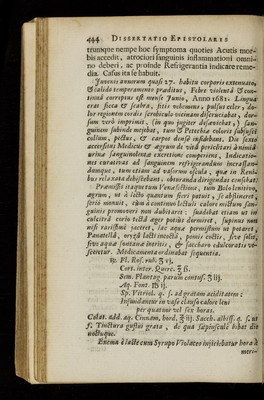 444 DISSERTATIO EPISTOLARIS
trumque nempe hoc symptoma quoties Acutis mor-
bis accedit, atrociori sanguinis inflammationi omni-
no deberi, ac proinde Refrigerantia indicare reme-
dia. Casus ita se habuit.
Juvenis annorum quasi 27. habitu corporis extenuato,
& calido temperamento præditus, Febre violentâ & con-
tinuâ correptus est mense Junio, Anno 1681. Lingua
erat sicca & scabra, sitis vehemens, pulsus celer, do-
lor regionem cordis scrobiculo vicinam discruciabat, dor-
sum verò imprimit,
guinem subinde mejebat, tum & Petechiæ coloris subfusci
collum, pectus, & carpos densè insidebant. Die sexto
accersitus Medicus & ægrum de vitâ periclitari à nimiâ
urinæ sanguinolentæ excretione comperiens, Indicatio-
nes curativas ad sanguinem refrigerandum incrassan-
dumque, tum etiam ad vasorum oscula, quæ in Reni-
bus relaxata dehiscebant, obturanda dirigendas censebat.
Præmissis itaque tum Venæsectione, tum Bolo lenitivo,
ægrum, ut à lecto quantum fieri potuit, se abstineret,
seriò monuit, cùm à continuo lectuli calore motum san-
guinis promoveri non dubitaret: suadebat etiam ut in
culcitrâ corio tectâ æger potiùs dormiret, supinus non
nisi rarissimè jaceret, lac aquâ permistum ut potaret,
Panatellâ, oryzâ lacti incoctâ, pomis coctis, sive solis,
sive aquæ fontanæ inritis, & saccharo edulcoratis ve-
sceretur. Medicamenta ordinabat sequentia.
℞ Fl. Ros. rub. ʒ vj.
Cort. inter. Querc. ℥ ß.
Sem. Plantag. parùm contus. ʒ iij.
Aq. Font. ℔ ij.
Sp. Vitriol. q. s. ad gratam aciditatem:
Infundantur in vase clauso calore leni
per quatuor vel sex horas.
Colat. add. aq. Cinnam. hord. ℥ iij. Sacch. albiss. q. s. ut
f. Tinctura gustui grata, de quâ sæpiusculè bibat die
noctuque.
Enema è lacte cum Syrupo Violaceo injiciebatur hora à
meri-